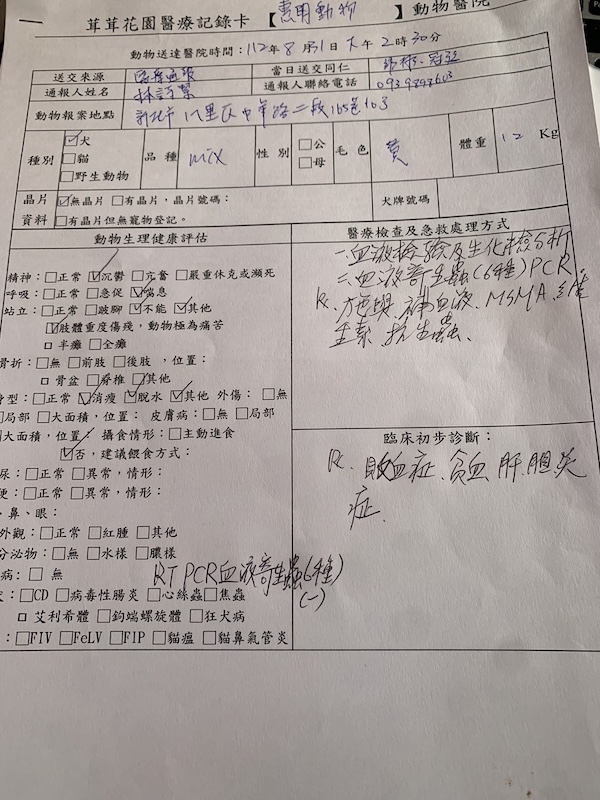 茸茸花園醫療記錄卡 【惠用動物 】動物醫院
動物送達醫院時間：112年8月31日下午2時30分
送交來源 當日送交同仁
通報人姓名 林 通報人聯絡電話
動物報案地點 新北市八里區中華路二段165巷103
種別 ☑犬 □貓 □野生動物 品種 mix 性別 □公 □母 毛色 黃 體重 12 Kg
晶片資料 ☑無晶片 □有晶片，晶片號碼： 犬牌號碼
□有晶片但無寵物登記。
動物生理健康評估
精神：□正常 ☑沉鬱 □亢奮 □嚴重休克或瀕死
呼吸：□正常 □急促 ☑喘息
站立：□正常 □跛腳 ☑不能 ☑其他
☑肢體重度傷殘，動物極為痛苦
□半癱 □全癱
骨折：□無 □前肢 □後肢，位置：
□骨盆 □脊椎 □其他
身型：□正常 ☑消瘦 ☑脫水 ☑其他 外傷：□無
□局部 □大面積，位置： 皮膚病：□無 □局部
□大面積，位置： 攝食情形：□主動進食
☑否，建議餵食方式：
尿：□正常 □異常，情形：
便：□正常 □異常，情形：
、鼻、眼：
外觀：□正常 □紅腫 □其他
分泌物：□無 □水樣 □膿樣
病：□ 無
RT PCR血液寄生蟲(6種)
(-)
：□CD □病毒性腸炎 □心絲蟲 □焦蟲
□艾利希體 □鉤端螺旋體 □狂犬病
：□FIV □FeLV □FIP □貓瘟 □貓鼻氣管炎
醫療檢查及急救處理方式
一.血液檢驗及生化檢分析
二.血液寄生蟲(6種)PCR
R. 施與.補血液.MSMA.維
生素.抗生蟲.
臨床初步診斷：
R. 敗血症.貧血.肝.膽炎
症.